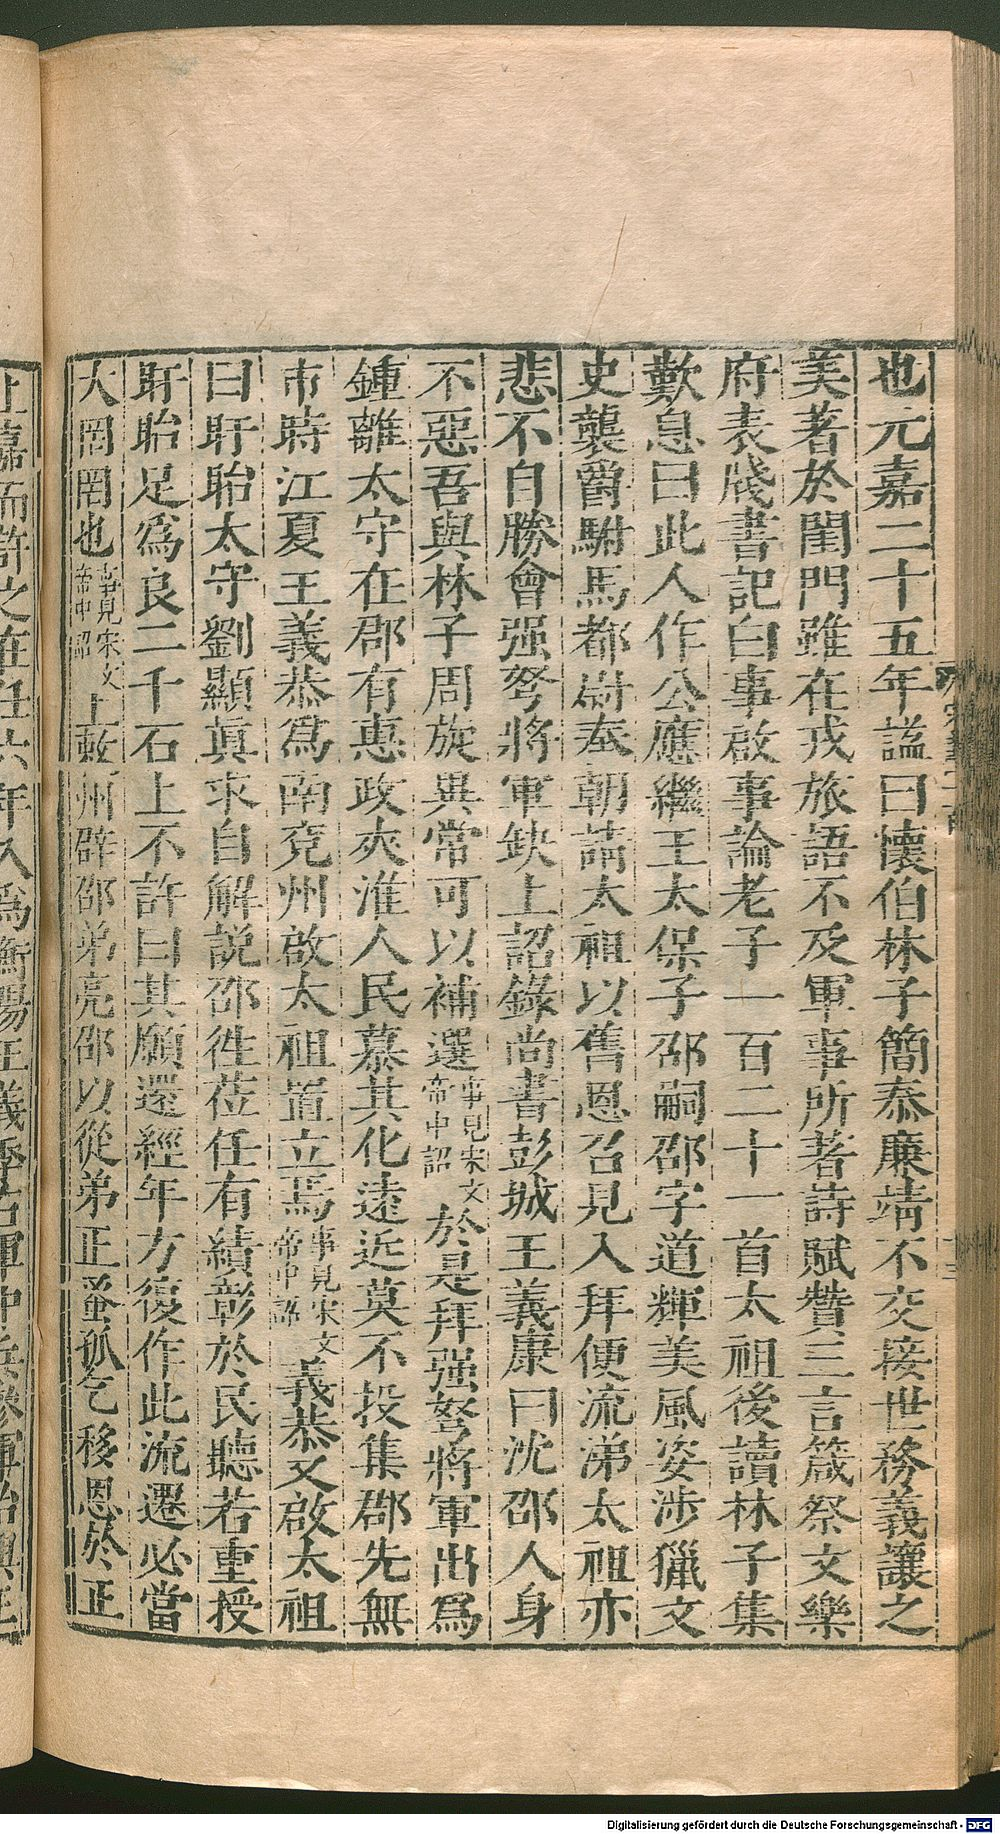 也元嘉二十五年諡曰懷伯林子簡泰廉靖不交接世務義讓之
美著於閨門雖在戎旅語不及軍事所著詩賦贊三言箴祭文樂
府表牋書記白事啟事論老子一百二十一首太祖後讀林子集
歎息曰此人作公應繼王太保子邵嗣邵字道輝美風姿涉獵文
史襲爵駙馬都尉奉朝請太祖以舊恩召見入拜便流涕太祖亦
悲不自勝會强弩將軍缺上詔錄尚書彭城王義康曰沈邵人身
不惡吾與林子周旋異常可以補選事見宋文帝中詔於是拜强弩將軍出爲
鍾離太守在郡有惠政夾淮人民慕其化遠近莫不投集郡先無
市時江夏王義恭爲南兖州啟太祖置立焉事見宋文帝中詔義恭又啟太祖
曰盱眙太守劉顯眞求自解說邵徃莅任有績彰於民聽若重授
盱眙足爲良二千石上不許曰其願還經年方復作此流遷必當
大罔罔也事見宋文帝中詔上敕州辟邵弟亮邵以從弟正蚤孤乞移恩於正
Digitalisierung gefördert durch die Deutsche Forschungsgemeinschaft - DFG